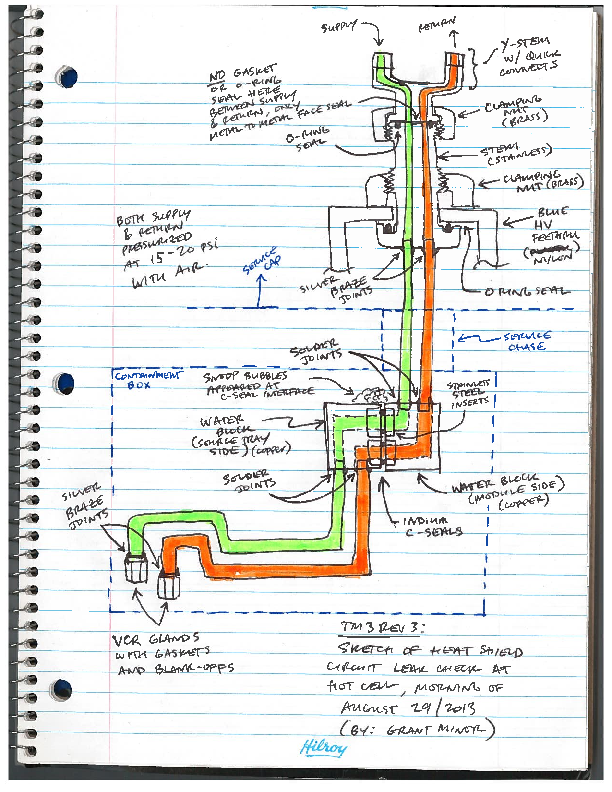 SUPPLY
RETURN
Y-STEM
W/ QUICK
CONNECTS
NO GASKET
OR O-RING
SEAL HERE
BETWEEN SUPPLY
& RETURN, ONLY
METAL TO METAL FACE SEAL
O-RING
SEAL
CLAMPING
NUT
(BRASS)
STEM
(STAINLESS)
CLAMPING
NUT (BRASS)
BLUE
HV
FEEDTHRU
NYLON
O RING SEAL
BOTH SUPPLY
& RETURN
PRESSURIZED
AT 15-20 PSI
WITH AIR.
SERVICE
CAP
SILVER
BRAZE
JOINTS
SERVICE
CHASE
CONTAINMENT
BOX
SNOOP BUBBLES
APPEARED AT
C-SEAL INTERFACE
SOLDER
JOINTS
STAINLESS
STEEL
INSERTS
WATER
BLOCK
(SOURCE TRAY
SIDE) (COPPER)
SOLDER
JOINTS
WATER BLOCK
(MODULE SIDE)
(COPPER)
INDIUM
C-SEALS
SILVER
BRAZE
JOINTS
VCR GLANDS
WITH GASKETS
AND BLANK-OFFS
TM3 REV 3:
SKETCH OF HEAT SHIELD
CIRCUIT LEAK CHECK AT
HOT CELL, MORNING OF
AUGUST 29/2013
(BY: GRANT MINOR)
Hilroy